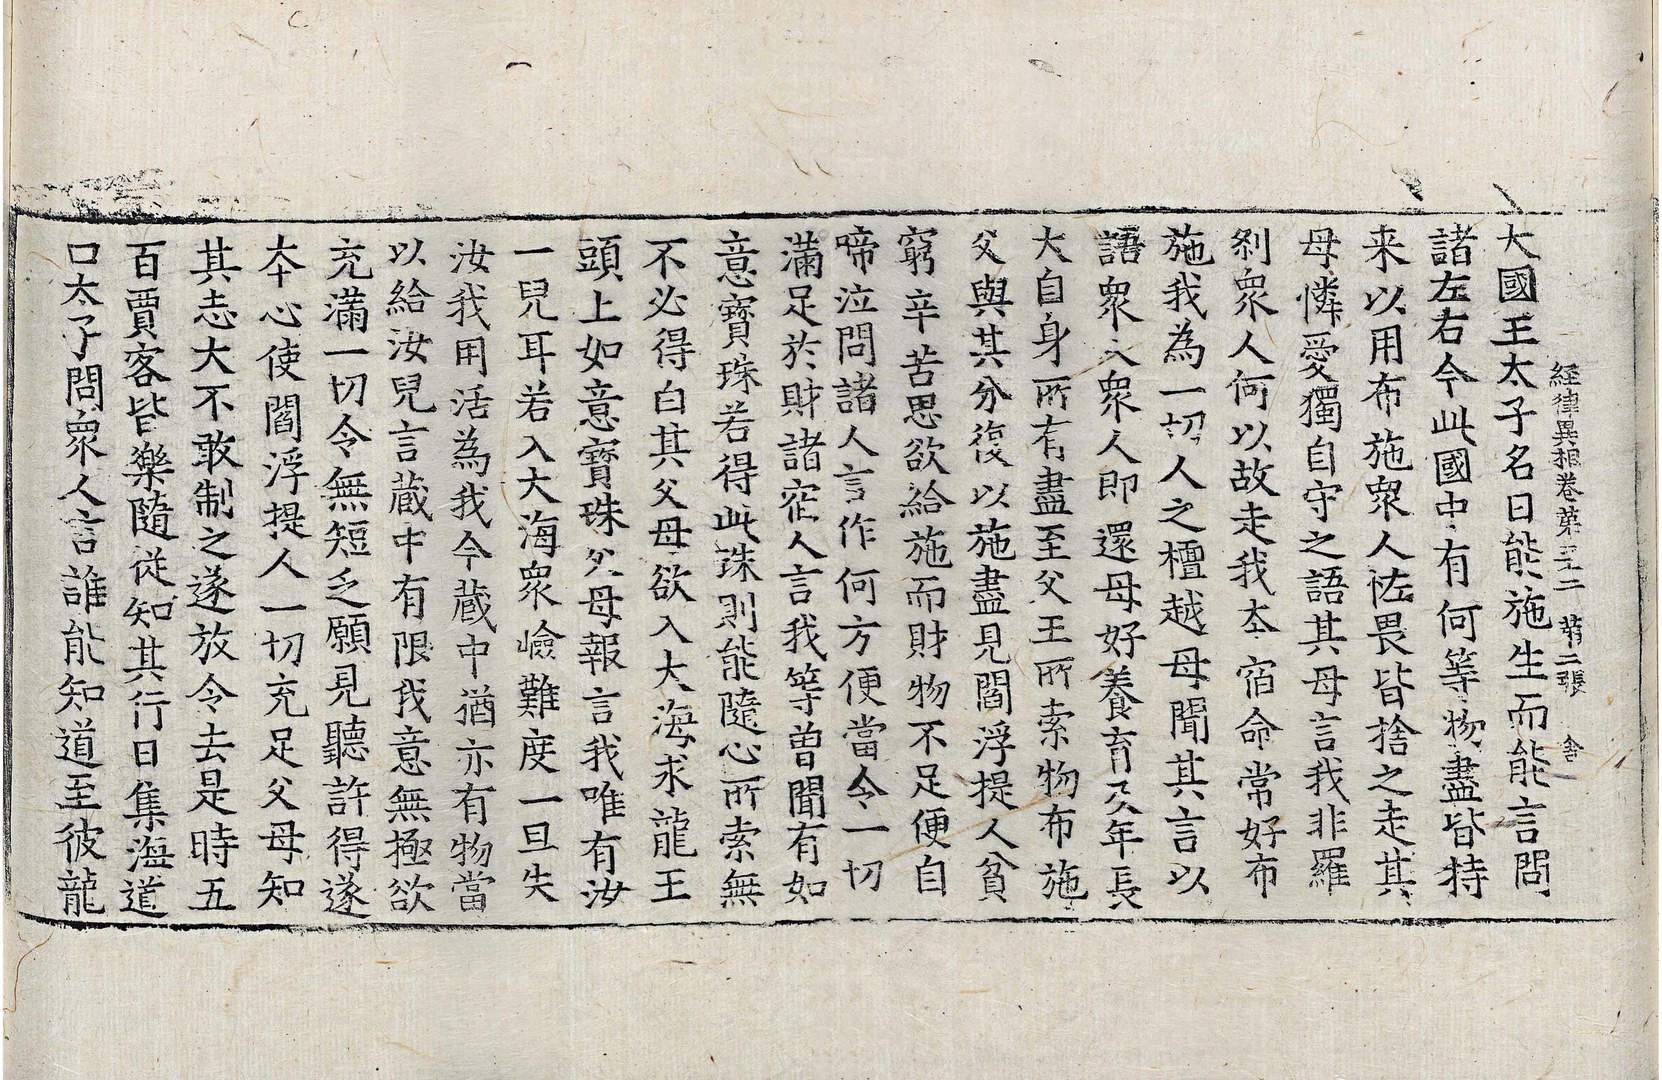 経律異相卷第三十二 第二張 舎
大國王太子名曰能施生而能言問
諸左右今此國中有何等物盡皆持
来以用布施衆人恠畏皆捨之走其
母憐愛獨自守之語其母言我非羅
剎衆人何以故走我本宿命常好布
施我為一切人之檀越母聞其言以
語衆人衆人即還母好養育及年長
大自身所有盡至父王所索物布施
父與其分復以施盡見閻浮提人貧
窮辛苦思欲給施而財物不足便自
啼泣問諸人言作何方便當令一切
滿足於財諸宿人言我等曽聞有如
意寳珠若得此珠則能隨心所索無
不必得白其父母欲入大海求龍王
頭上如意寳珠父母報言我唯有汝
一兒耳若入大海衆嶮難度一旦失
汝我用活為我今藏中猶亦有物當
以給汝兒言藏中有限我意無極欲
充滿一切令無短乏願見聽許得遂
本心使閻浮提人一切充足父母知
其志大不敢制之遂放令去是時五
百賈客皆樂隨從知其行日集海道
口太子問衆人言誰能知道至彼龍